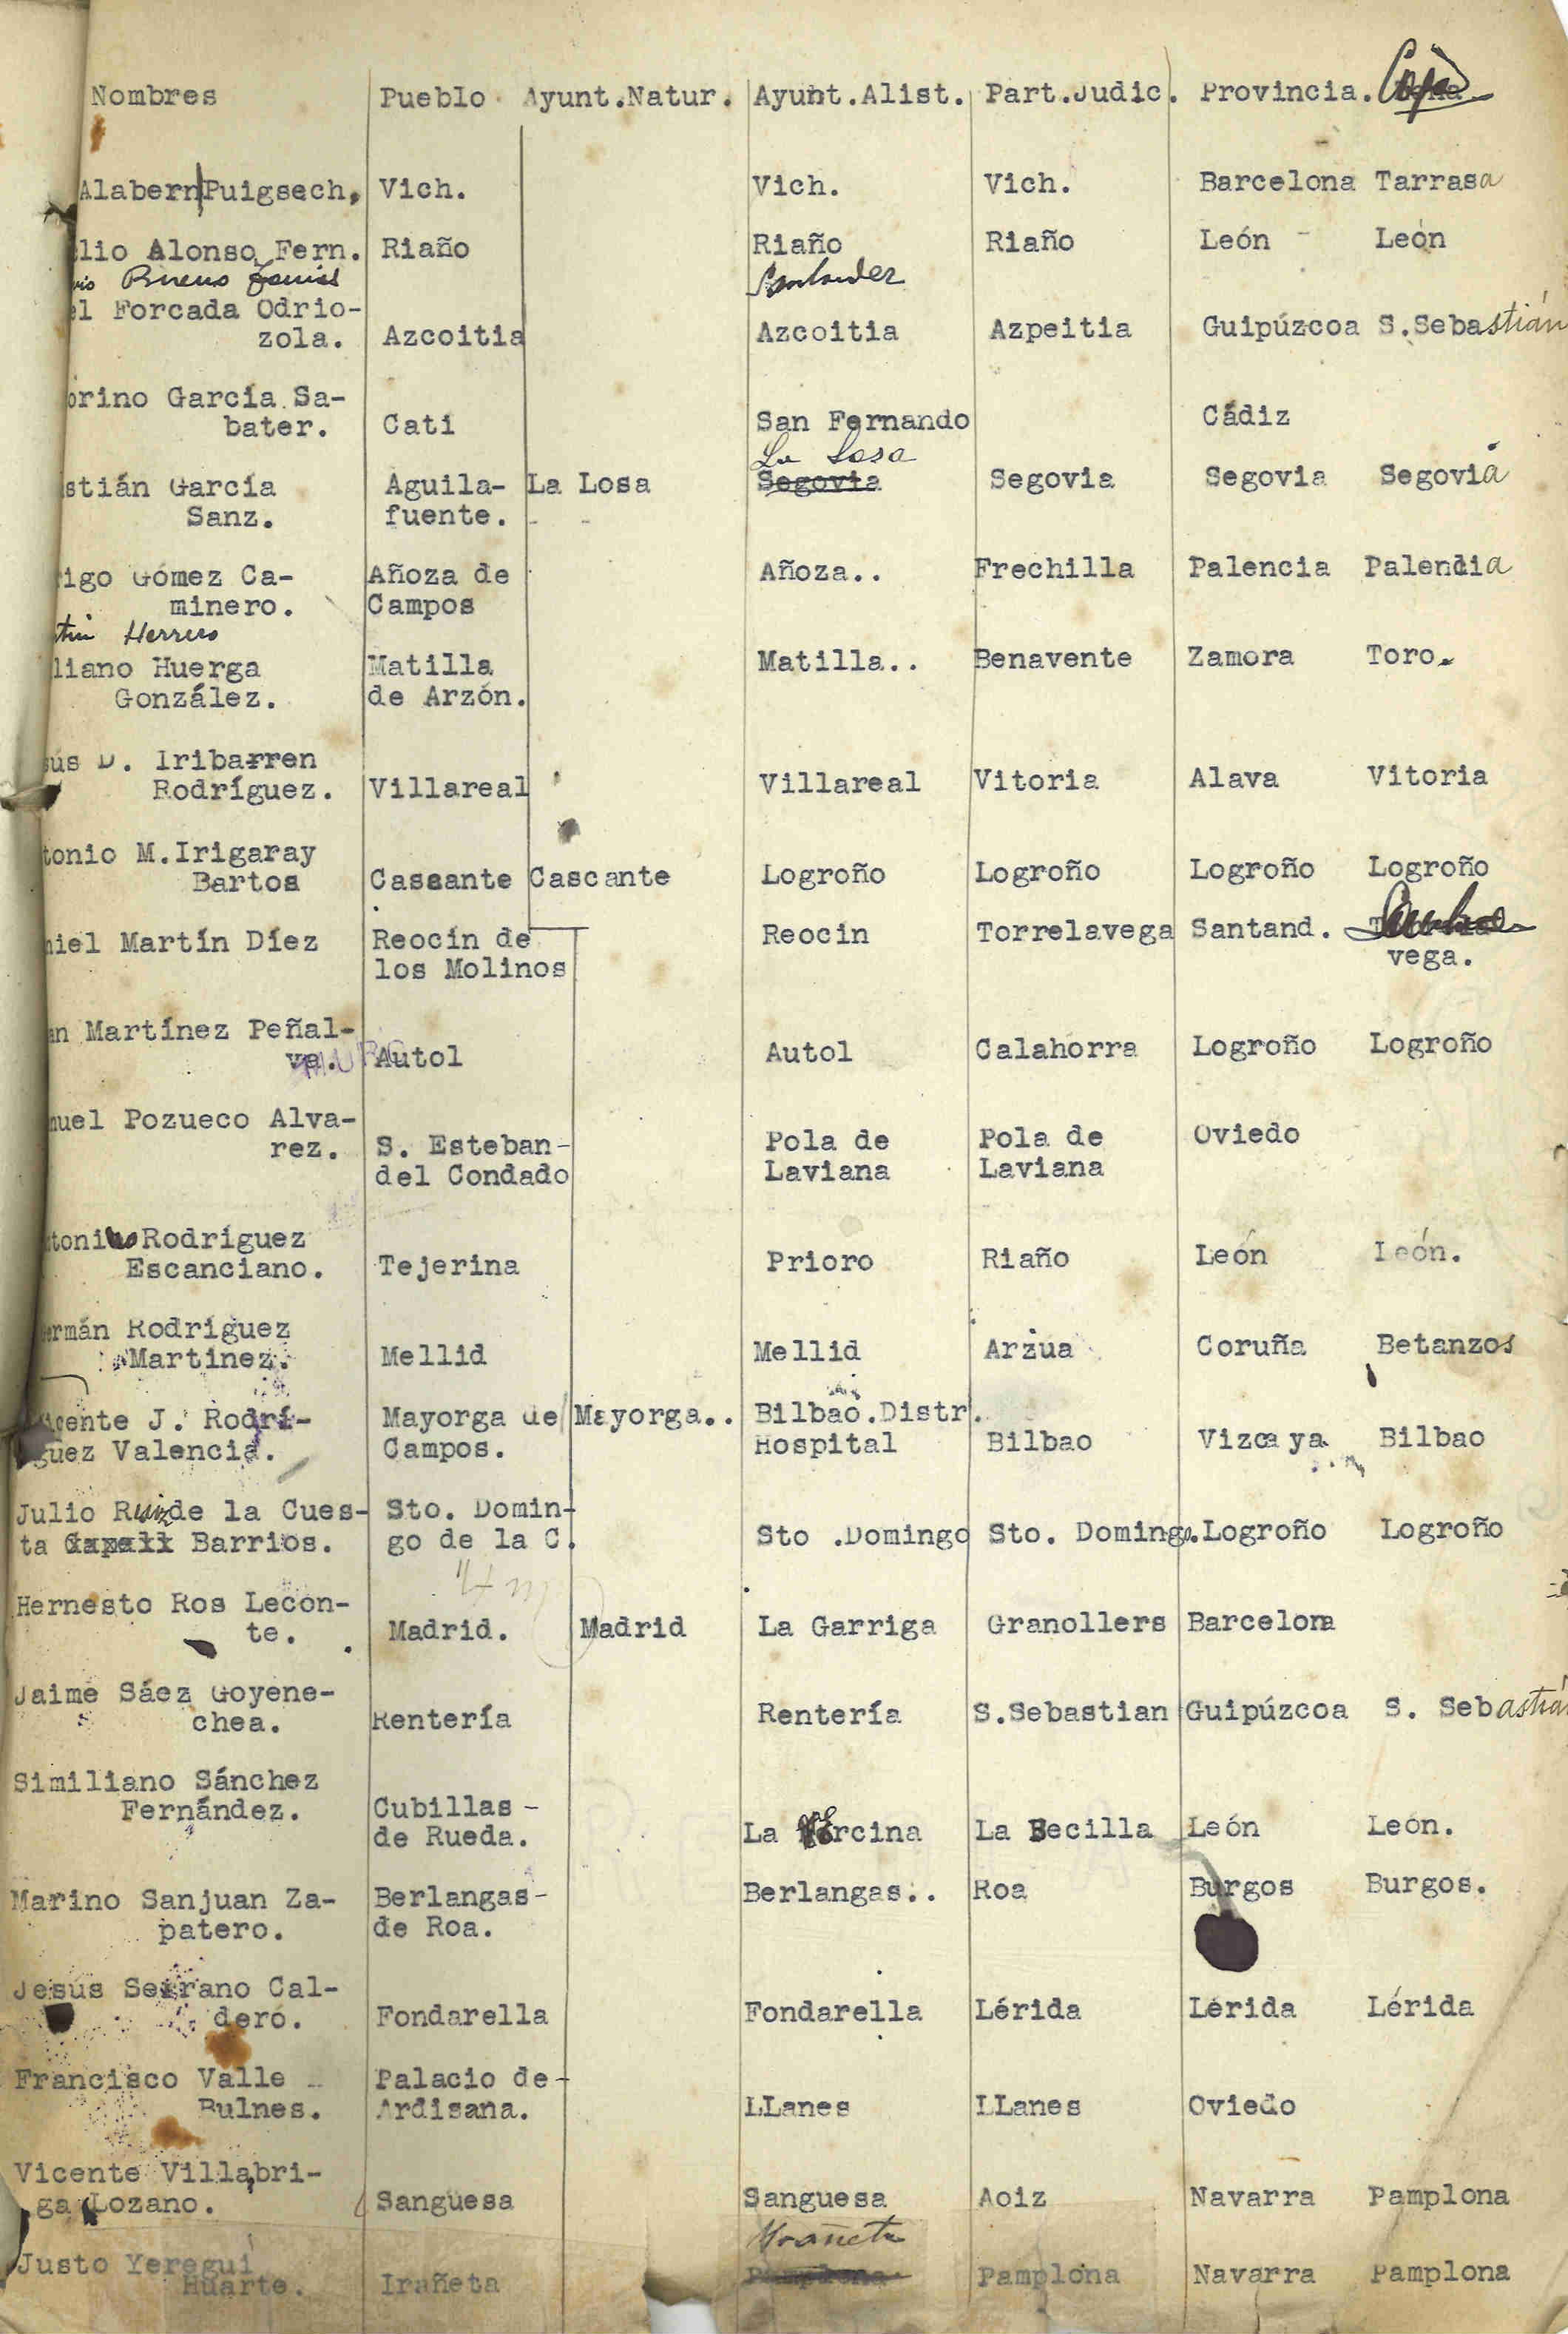 Nombres Pueblo Ayunt.Natur. Ayunt.Alist. Part.Judic. Provincia. Caja
Alabern Puigsech, Vich. Vich. Vich. Barcelona Tarrasa
lio Alonso Fern. Riaño Riaño Riaño León León
Bueno Santander
el Forcada Odrio-
zola. Azcoitia Azcoitia Azpeitia Guipúzcoa S.Sebastián
orino García Sa-
bater. Cati San Fernando Cádiz
La Losa
stián García Aguila- La Losa Segovia Segovia Segovia Segovia
Sanz. fuente.
igo Gómez Ca- Añoza de Añoza.. Frechilla Palencia Palendia
minero. Campos
Herrero
liano Huerga Matilla Matilla.. Benavente Zamora Toro.
González. de Arzón.
sús D. Iribarren
Rodríguez. Villareal Villareal Vitoria Alava Vitoria
tonio M.Irigaray
Bartos Cascante Cascante Logroño Logroño Logroño Logroño
niel Martín Díez Reocín de Reocin Torrelavega Santand.
los Molinos vega.
an Martínez Peñal-
va. Autol Autol Calahorra Logroño Logroño
nuel Pozueco Alva-
rez. S. Esteban- Pola de Pola de Oviedo
del Condado Laviana Laviana
tonino Rodríguez
Escanciano. Tejerina Prioro Riaño León León.
ermán Rodríguez
Martinez. Mellid Mellid Arzua Coruña Betanzos
icente J. Rodrí- Mayorga de Mayorga.. Bilbao.Distr.
guez Valencia. Campos. Hospital Bilbao Vizcaya Bilbao
Julio Ruiz de la Cues- Sto. Domin-
ta Barrios. go de la C. Sto .Domingo Sto. Domingo. Logroño Logroño
Hernesto Ros Lecon-
te. Madrid. Madrid La Garriga Granollers Barcelona
Jaime Sáez Goyene-
chea. Rentería Rentería S.Sebastian Guipúzcoa S. Sebastián
Similiano Sánchez
Fernández. Cubillas - La Ercina La Becilla León León.
de Rueda.
Marino Sanjuan Za- Berlangas- Berlangas.. Roa Burgos Burgos.
patero. de Roa.
Jesús Serrano Cal-
deró. Fondarella Fondarella Lérida Lérida Lérida
Francisco Valle Palacio de-
Bulnes. Ardisana. LLanes LLanes Oviedo
Vicente Villabri-
ga Lozano. Sanguesa Sanguesa Aoiz Navarra Pamplona
Yrañeta
Justo Yeregui
Huarte. Irañeta Pamplona Pamplona Navarra Pamplona